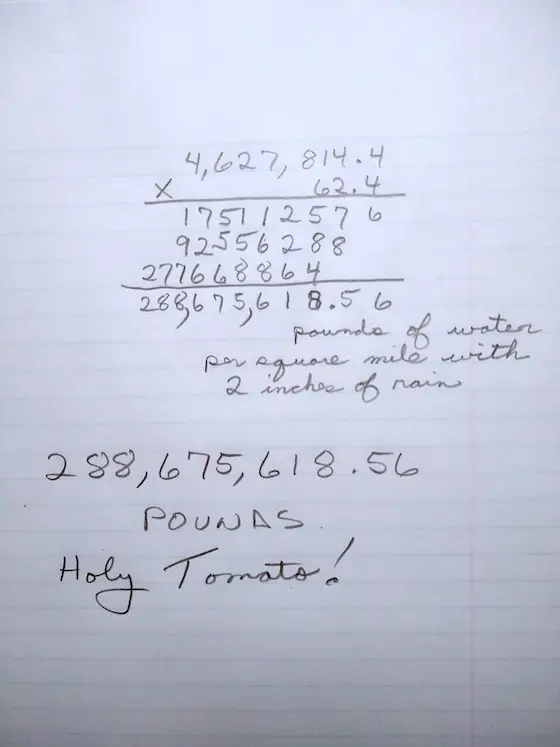 4,627,814.4
x 62.4
175112576
92556288
277668864
288,675,618.56
pounds of water
per square mile with
2 inches of rain
288,675,618.56
POUNDS
Holy Tomato!